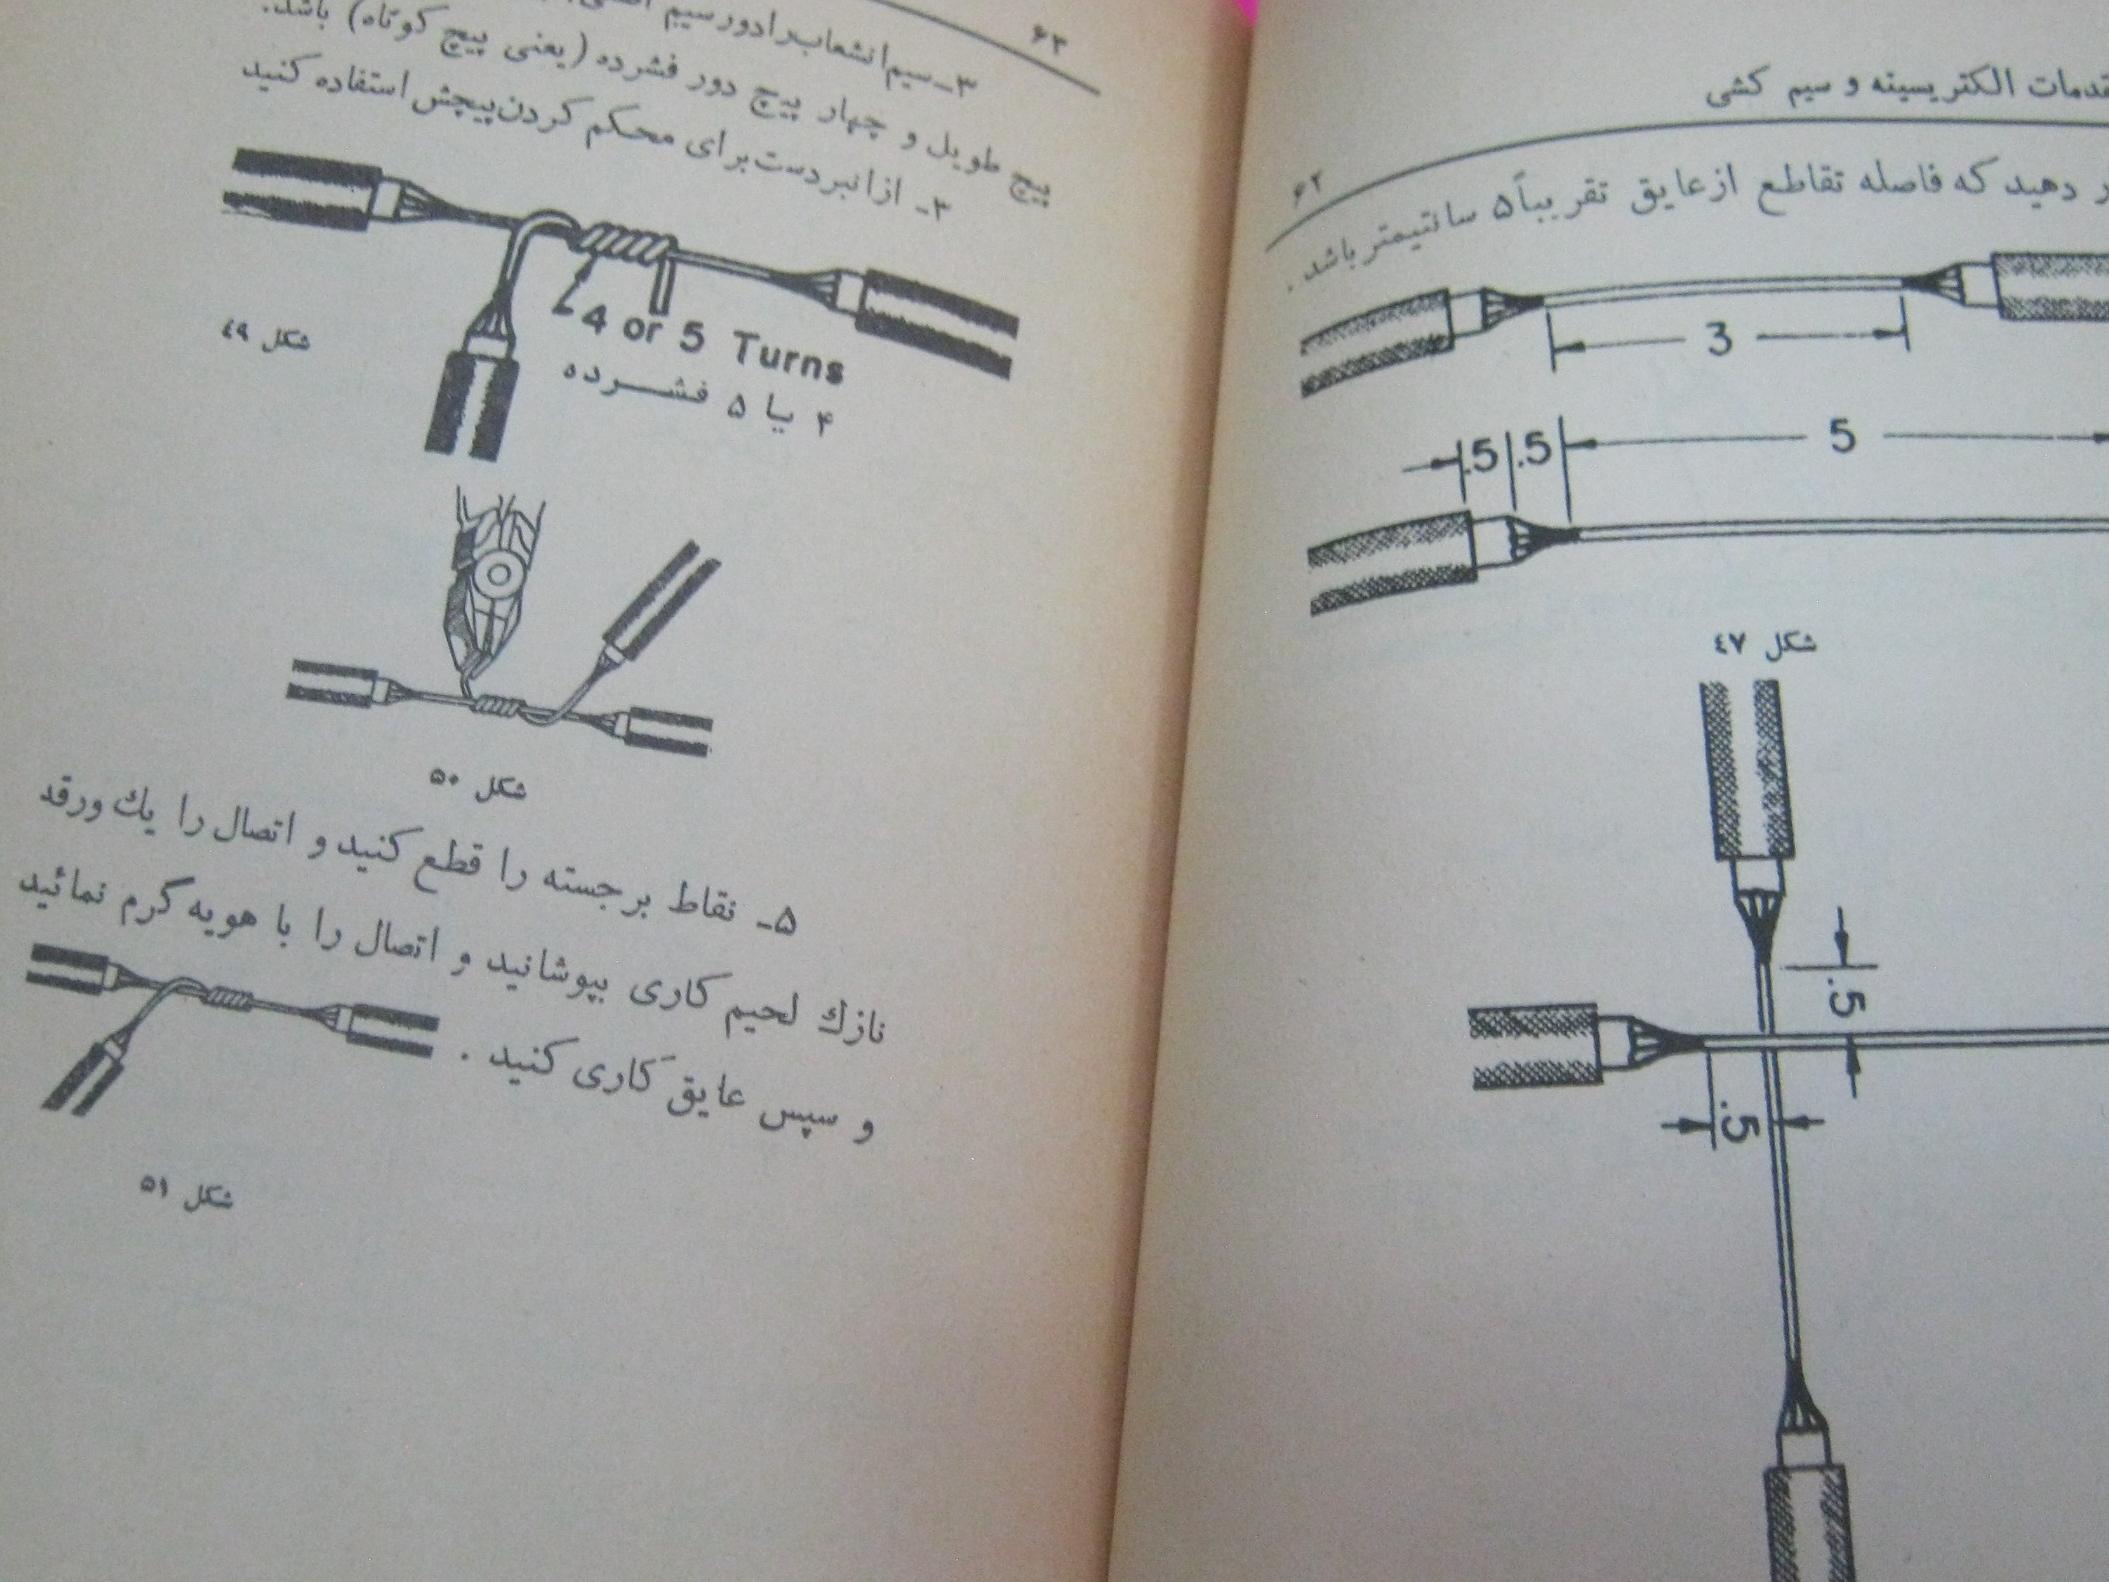 قدمات الکتریسیته و سیم کشی
۶۲
ر دهید که فاصله تقاطع از عایق تقریباً ۵ سانتیمتر باشد .
3
.5 .5 5
شکل ٤٧
.5
.5
۶۳
۳ـ سیم انشعاب را دور سیم
پیچ طویل و چهار پیچ دور فشرده (یعنی پیچ کوتاه) باشد.
۳ـ از انبردست برای محکم کردن پیچش استفاده کنید
4 or 5 Turns
۴ یا ۵ فشرده
شکل ٤٩
شکل ۵۰
۵ـ نقاط برجسته را قطع کنید و اتصال را یك ورقه
نازك لحیم کاری بپوشانید و اتصال را با هویه گرم نمائید
و سپس عایق کاری کنید .
شکل ۵۱